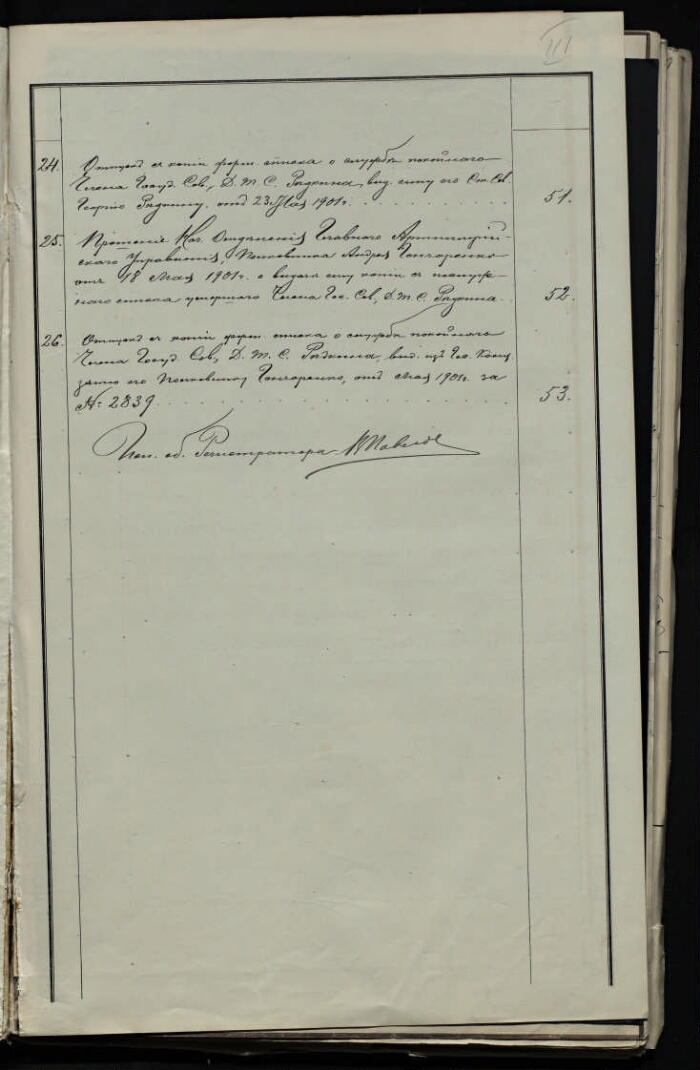 III
24. Отпускъ съ копіи форм. списка о службѣ покойнаго
Члена Госуд. Сов., Д. Т. С. Рѣдкина, выд. сыну его Ст. Сов.
Георгію Рѣдкину, отъ 23 Мая 1901 г. 51.
25. Прошеніе Нач. Отдѣленія Главнаго Артиллерій-
скаго Управленія, Полковника Андрея Гончаренко
отъ 18 Мая 1901 г. о выдачѣ ему копіи съ послуж-
наго списка умершаго Члена Гос. Сов., Д. Т. С. Рѣдкина 52.
26. Отпускъ съ копіи форм. списка о службѣ покойнаго
Члена Госуд. Сов., Д. Т. С. Рѣдкина, выд. изъ Гос. Канц.
зятю его Полковнику Гончаренко, отъ Мая 1901 г. за
№ 2839 53.
Исп. об. Регистратора